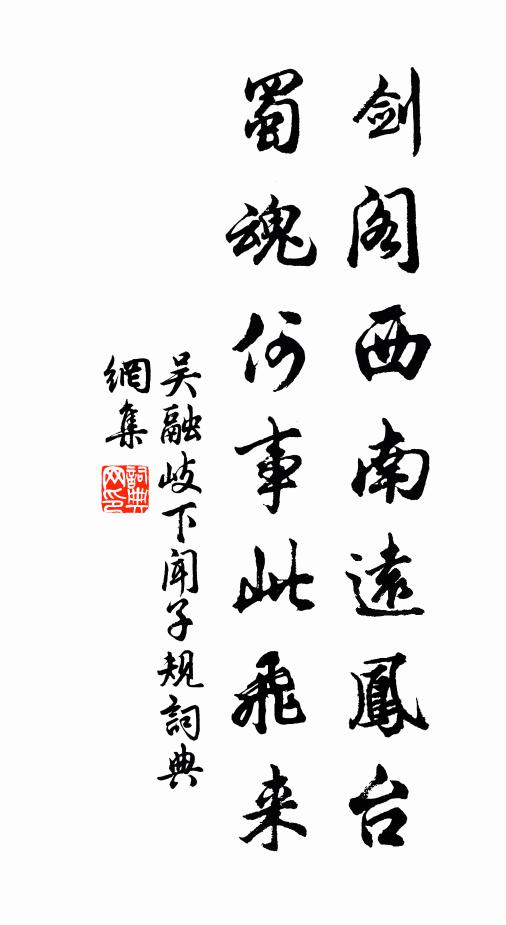 剑阁西南遠鳳台
蜀魂何事此飛来
吴融岐下闻子规詞典
網集
詞典网印